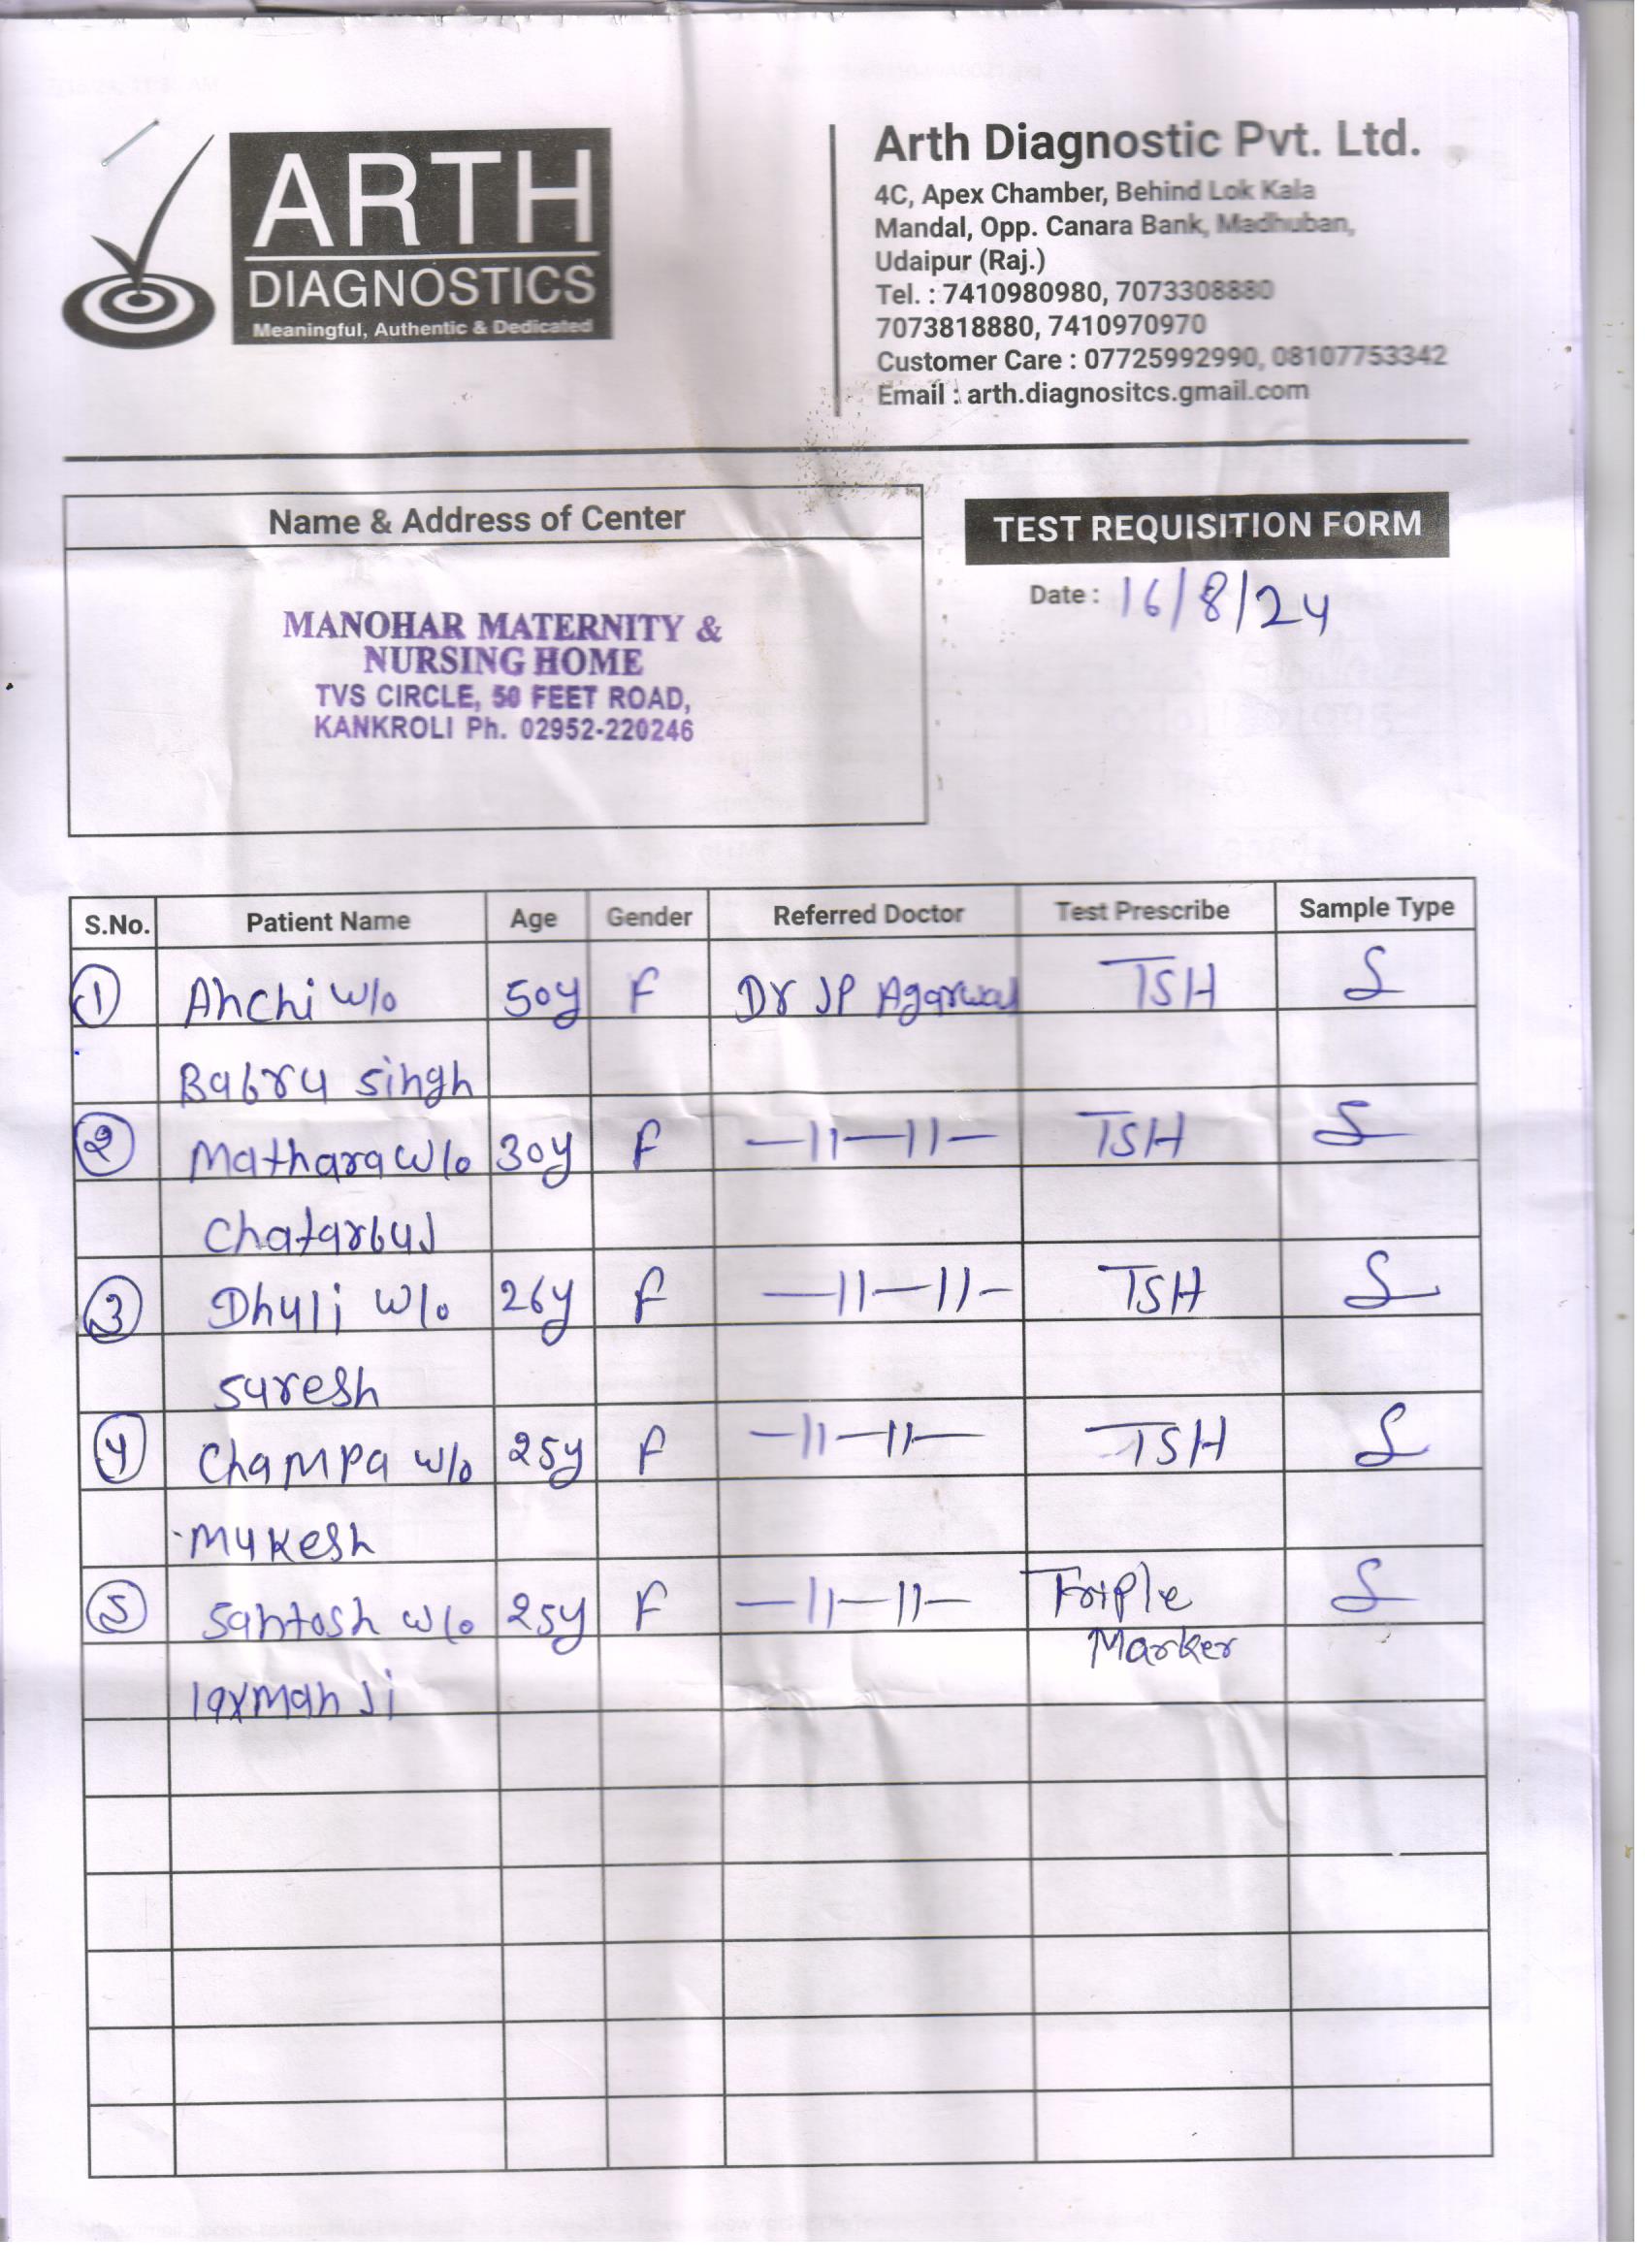 ARTH
DIAGNOSTICS
Meaningful, Authentic & Dedicated
Arth Diagnostic Pvt. Ltd.
4C, Apex Chamber, Behind Lok Kala
Mandal, Opp. Canara Bank, Madhuban,
Udaipur (Raj.)
Tel. : 7410980980, 7073308880
7073818880, 7410970970
Customer Care : 07725992990, 08107753342
Email : arth.diagnositcs.gmail.com
Name & Address of Center
MANOHAR MATERNITY &
NURSING HOME
TVS CIRCLE, 50 FEET ROAD,
KANKROLI Ph. 02952-220246
TEST REQUISITION FORM
Date : 16/8/24
S.No. Patient Name Age Gender Referred Doctor Test Prescribe Sample Type
1 Ahchi w/o 50y F Dr JP Agarwal TSH S
Babru singh
2 Mathara w/o 30y F —11—11— TSH S
Chatarbuj
3 Dhuli w/o 26y F —11—11— TSH S
suresh
4 Champa w/o 25y F —11—11— TSH S
Mukesh
5 Santosh w/o 25y F —11—11— Triple S
Marker
laxman Ji